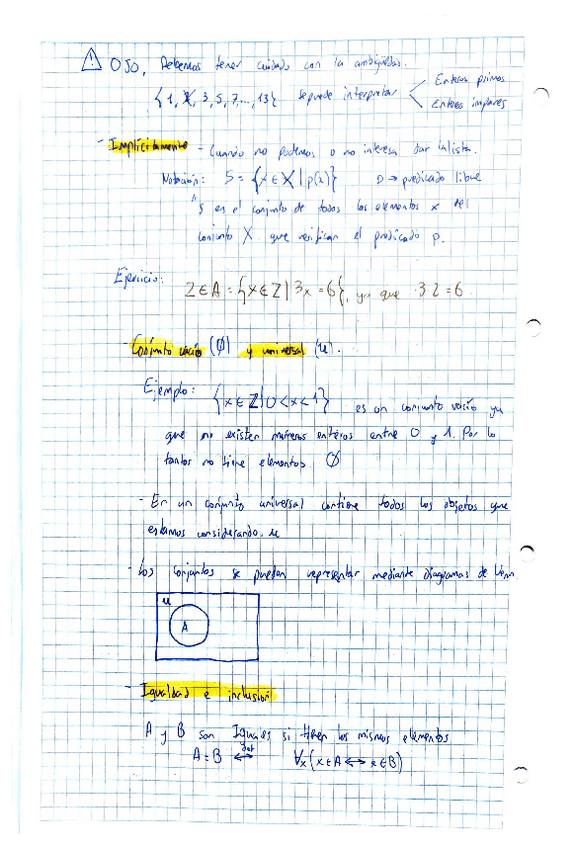 ⚠ OJO, Debemos tener cuidado con la ambigüedad.
{1, 2, 3, 5, 7,..., 13} se puede interpretar < Enteros primos
Enteros impares
- Implícitamente - Cuando no podemos o no interesa dar la lista.
Notación: S = {x ∈ X | p(x)} p → predicado libre
"S es el conjunto de todos los elementos x del
conjunto X que verifican el predicado p.
Ejercicio:
2 ∈ A = {x ∈ Z | 3x = 6}, ya que 3·2 = 6
- Conjunto vacío (Ø) y universal (U).
Ejemplo: {x ∈ Z | 0 < x < 1} es un conjunto vacío ya
que no existen números enteros entre 0 y 1. Por lo
tantos no tiene elementos. Ø
- En un conjunto universal contiene todos los objetos que
estamos considerando. U
- Los conjuntos se pueden representar mediante diagramas de Venn
U
A
- Igualdad e inclusión
A y B son Iguales si tienen los mismos elementos
A = B ⟷ def ∀x (x ∈ A ⟷ x ∈ B)